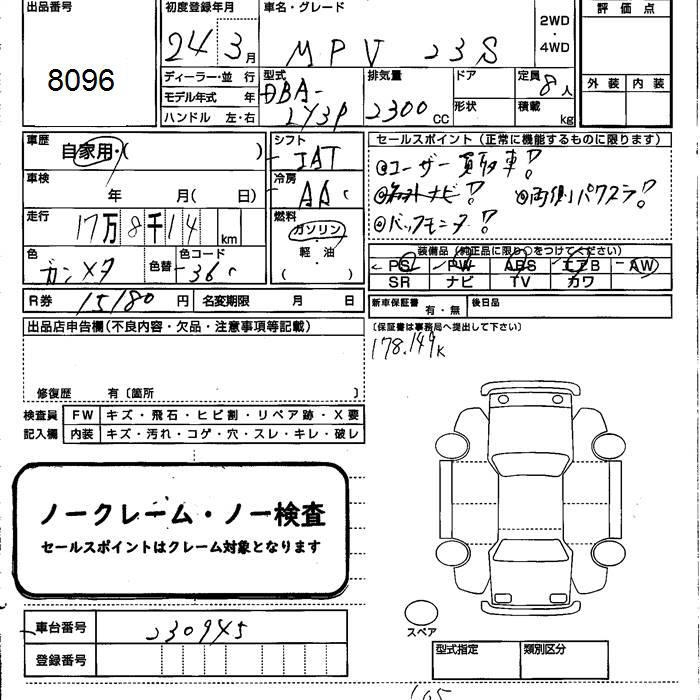 出品番号 初度登録年月 車名・グレード 評価点
8096 24 3月 MPV 23S 2WD・4WD
ディーラー・並行 型式 排気量 ドア 定員 8人 外装 内装
モデル年式 年 DBA- 2300cc 形状 積載 kg
ハンドル 左・右 LY3P
車歴 自家用・( ) シフト IAT セールスポイント(正常に機能するものに限ります)
◎ユーザー買取車!!
車検 年 月( 日) 冷房 AAC ナビ!! ◎両側パワスラ!!
◎バックモニタ!!
走行 17万8千14 km 燃料 ガソリン・軽・油・( )
装備品(純正品に限り○をつけてください)
色 ガンメタ 色替 色コード 36C PS PW ABS エアB AW
SR ナビ TV カワ
R券 15180円 名変期限 月 日 新車保証書 有・無 後日品
出品店申告欄(不良内容・欠品・注意事項等記載) (保証書は事務局へ提出して下さい)
178.149K
修復歴 有〔箇所 〕
検査員 FW キズ・飛石・ヒビ割・リペア跡・X要
記入欄 内装 キズ・汚れ・コゲ・穴・スレ・キレ・破レ
ノークレーム・ノー検査
セールスポイントはクレーム対象となります
車台番号 230945
スペア
登録番号 型式指定 類別区分